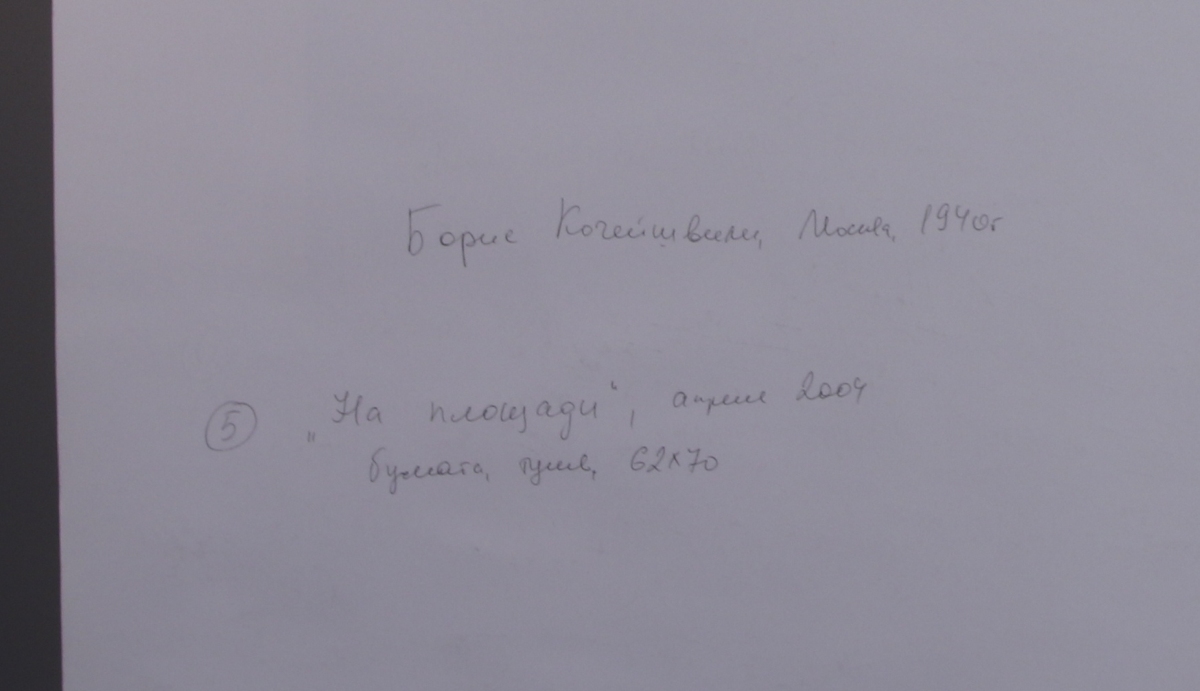 Борис Кочейшвили, Москва, 1940г
⑤ „На площади“, апрель 2004
бумага, тушь, 62×70